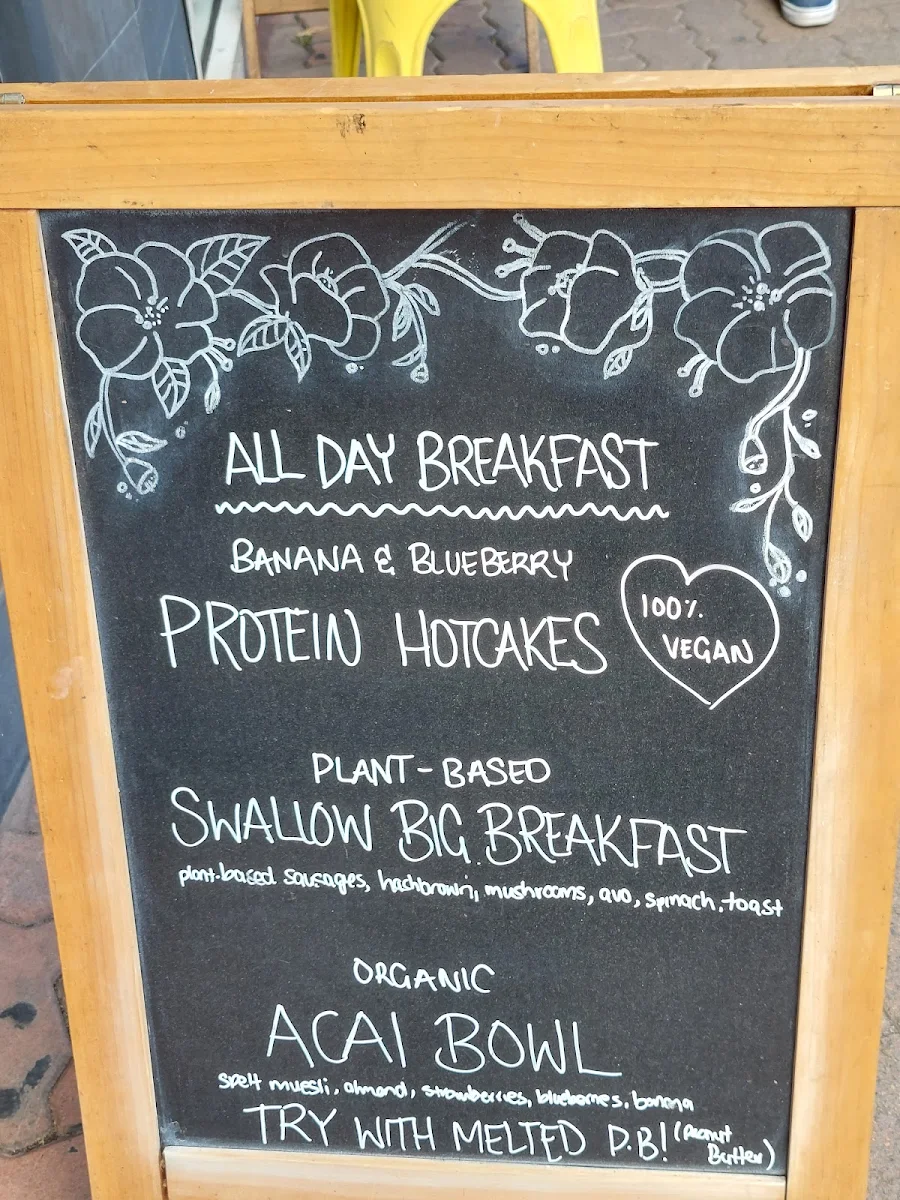 ALL DAY BREAKFAST
BANANA & BLUEBERRY
PROTEIN HOTCAKES
100%
VEGAN
PLANT-BASED
SWALLOW BIG BREAKFAST
plant-based sausages, hashbrown, mushrooms, avo, spinach, toast
ORGANIC
ACAI BOWL
spelt muesli, almond, strawberries, blueberries, banana
TRY WITH MELTED P.B! (Peanut
Butter)